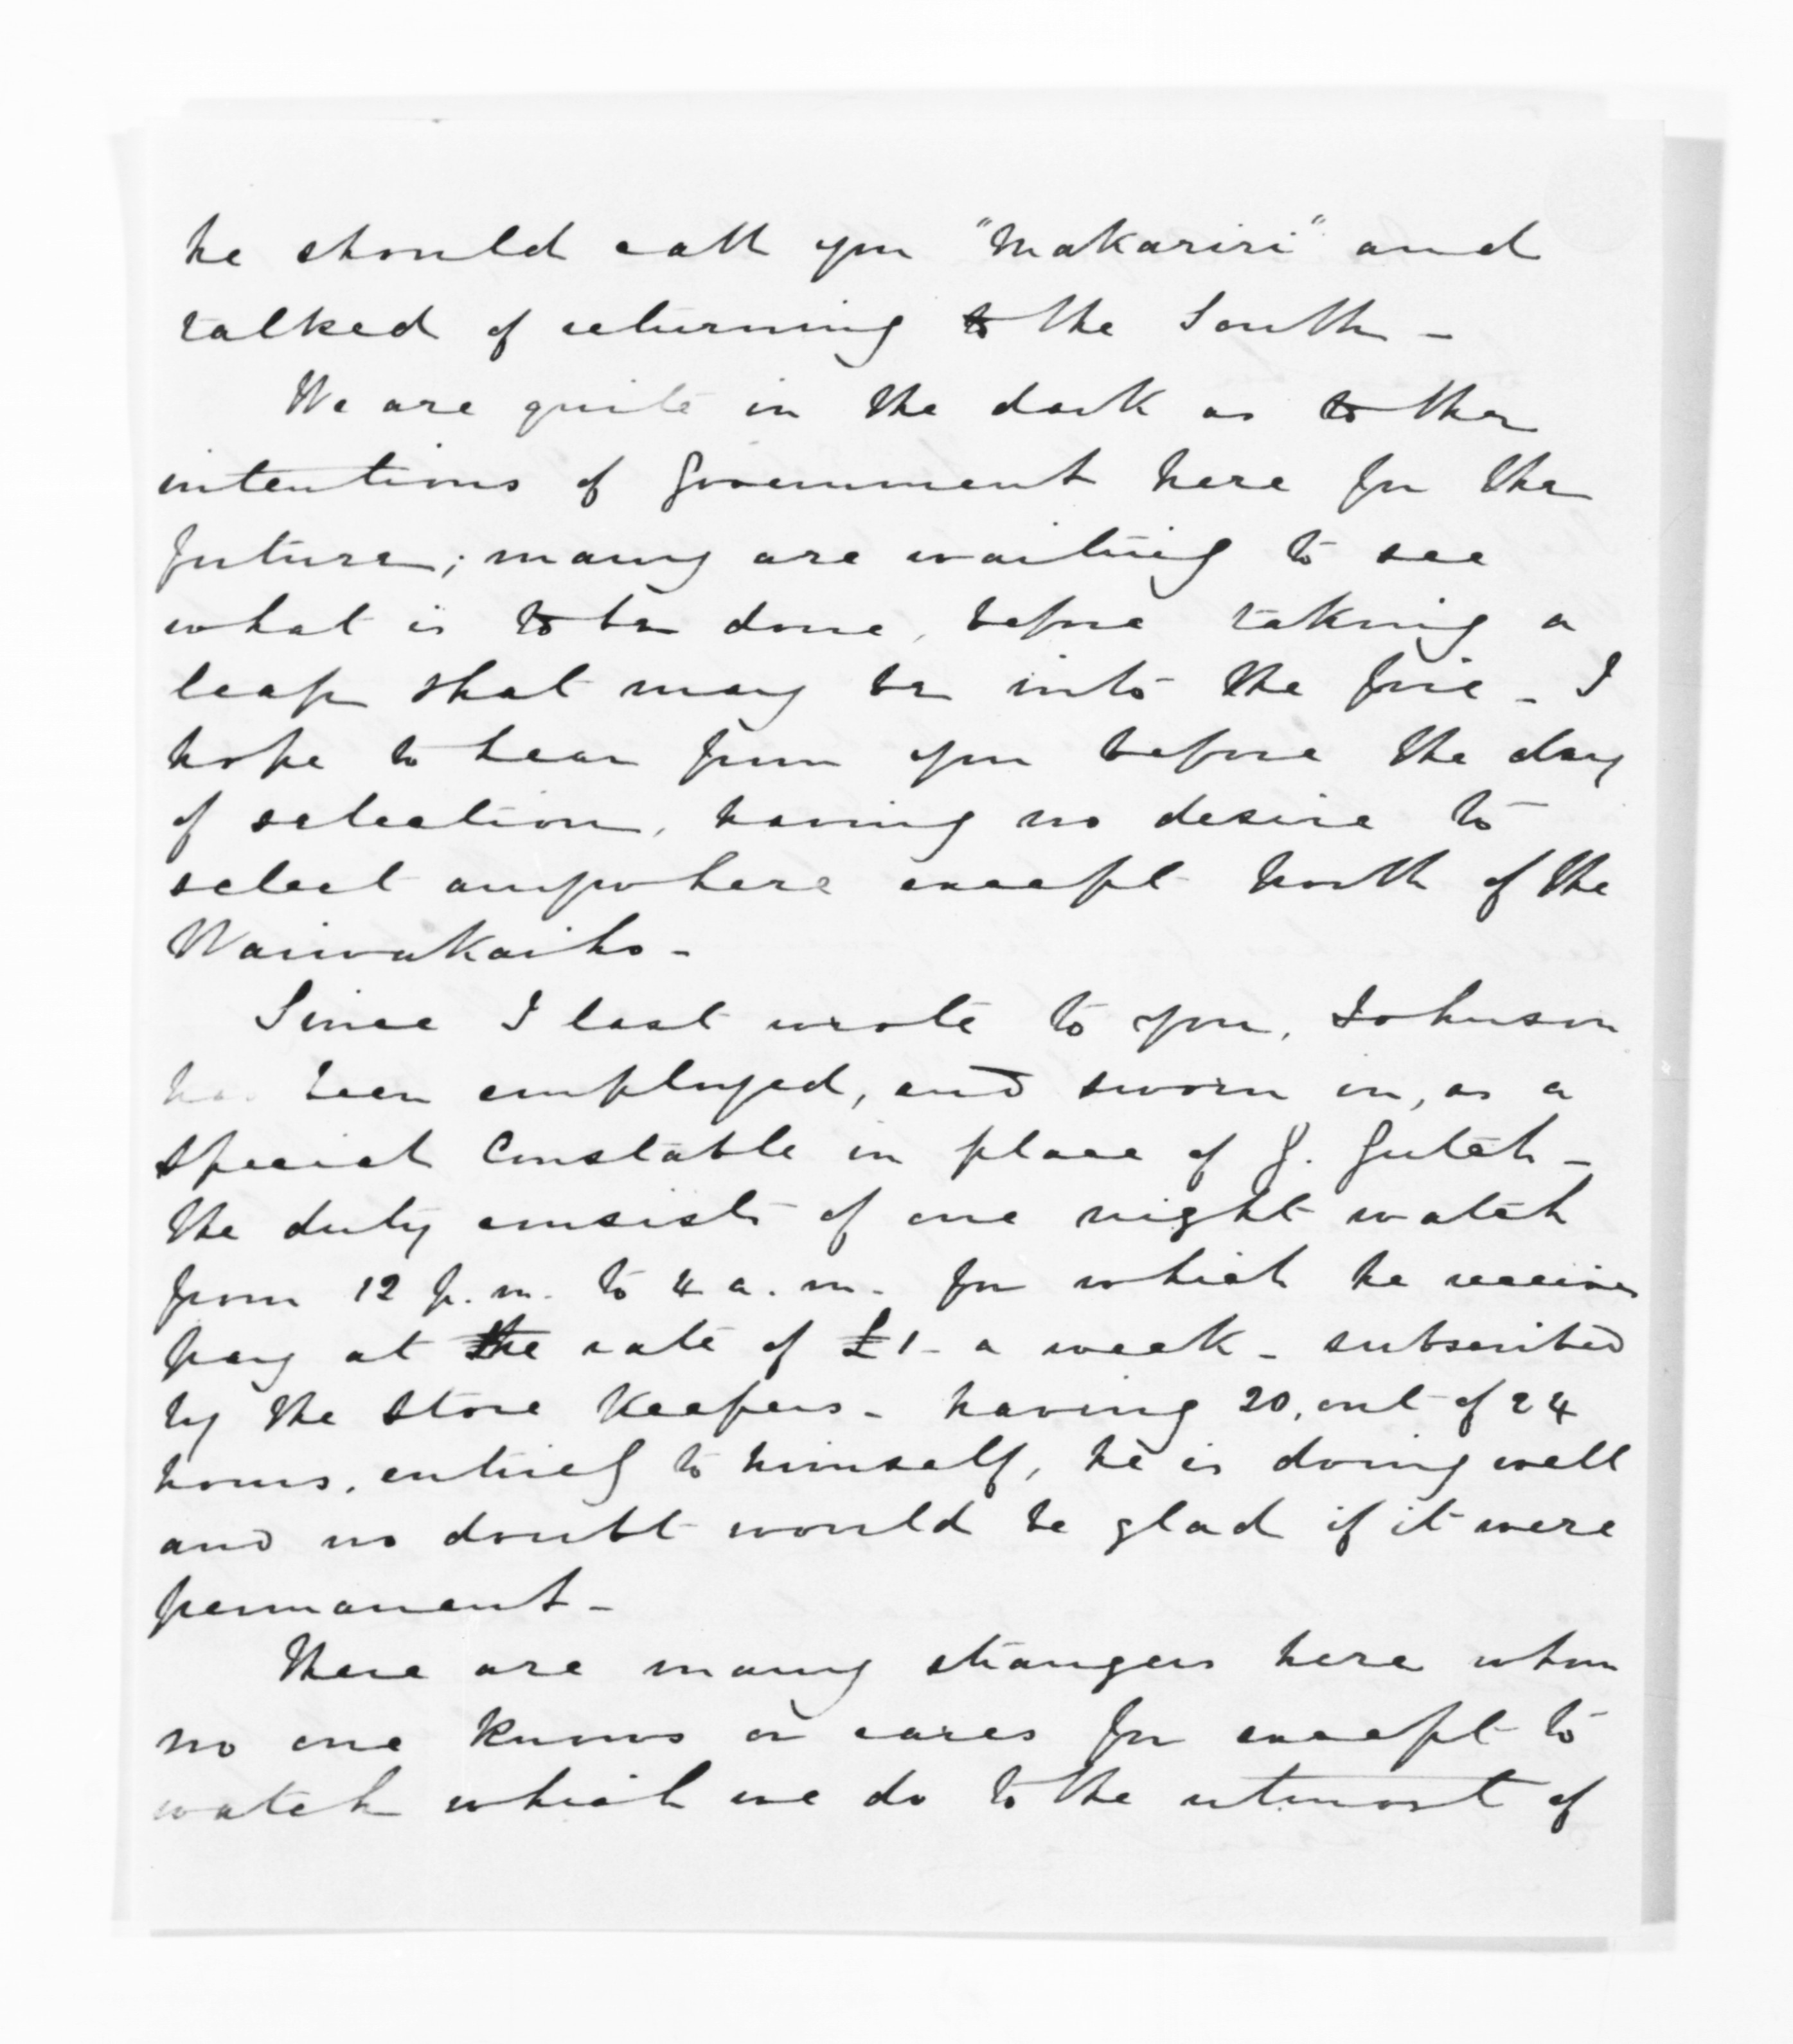 he should call you "Makariri" and
talked of returning to the South -
We are quite in the dark as to the
intentions of Government here for the
future; many are waiting to see
what is to be done, before taking a
leap that may be into the fire - I
hope to hear from you before the day
of selection, having no desire to
select anywhere except North of the
Waiwakaiho -
Since I last wrote to you, Johnson
has been employed, and sworn in, as a
special Constable in place of G. Gutch -
the duty consists of one night watch
from 12 p.m. to 4 a.m. for which he receives
pay at the rate of £1 - a week - subscribed
by the Store Keepers - having 20, out of 24
hours, entirely to himself, he is doing well
and no doubt would be glad if it were
permanent -
There are many strangers here whom
no one knows or cares for except to
watch which we do to the utmost of